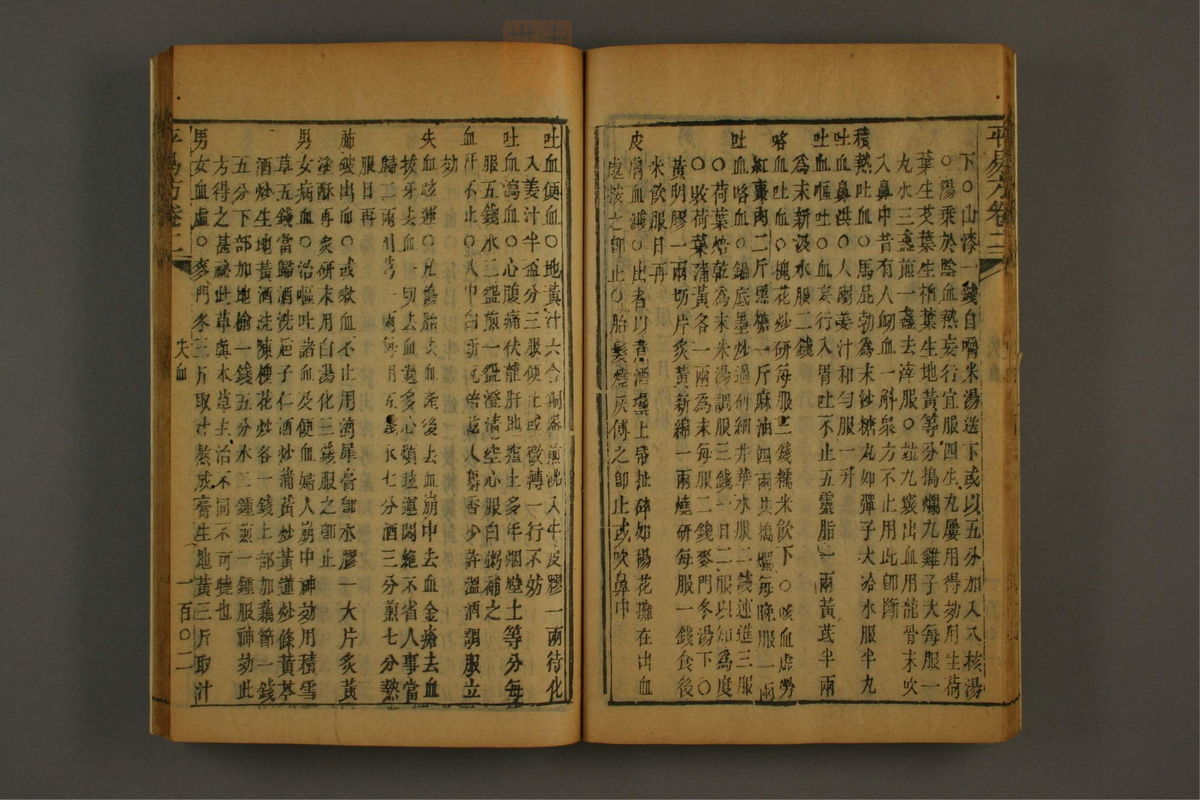 平易方卷二
下〇山漆一錢自嚼米湯送下或以五分加入八核湯
〇陽乘於陰血熱妄行宜服四生丸屢用得効用生荷
葉生艾葉生柏葉生地黃等分搗爛丸雞子大每服一
丸水三盞煎一盞去滓服〇九竅出血用龍骨末吹
入鼻中昔有人衂血一斛衆方不止用此即斷
積熱吐血〇馬屁勃為末沙糖丸如彈子大冷水服半丸
吐血鼻洪〇人溺姜汁和勻服一升
吐血嘔吐〇血妄行入胃吐不止五靈脂一兩黃芪半兩
為末新汲水服二錢
咯血吐血〇槐花炒研每服三錢糯米飲下〇咳血虛勞
紅棗肉二斤黑糖一斤麻油四兩共搗爛每晚服一兩
吐血咯血〇鍋底墨炒過研細井華水服二錢連進三服
〇荷葉焙乾為末米湯調服三錢一日二服以知為度
〇敗荷葉蒲黃各一兩為末每服二錢麥門冬湯下〇
黃明膠一兩切片炙黃新綿一兩燒研每服一錢食後
米飲服日再
皮膚血濺〇出者以煮酒壜上帋扯碎如楊花攤在出血
處按之即止〇胎髮燒灰傅之即止或吹鼻中
吐血便血〇地黃汁六合銅器煎沸入牛皮膠一兩待化
入姜汁半盃分三服便止或微轉一行不妨
吐血瀉血〇心腹痛伏龍肝地爐土多年烟壁土等分每
服五錢水二盌煎一盌澄清空心服白粥補之
血汗不止〇人中白新瓦焙乾入麝香少許溫酒調服立
効
失血眩運〇凡傷胎去血產後去血崩中去血金瘡去血
拔牙去血一切去血過多心煩眩運悶絕不省人事當
歸二兩川芎一兩每用五錢水七分酒三分煎七分熱
服日再
肺破出血〇或嗽血不止用海犀膏即水膠一大片炙黃
塗酥再炙研末用白湯化三錢服之即止
男女病血〇治嘔吐諸血及便血婦人崩中神効用積雪
草五錢當歸酒洗梔子仁酒炒蒲黃炒黃蓮炒條黃芩
酒炒生地黃酒洗陳槐花炒各一錢上部加藕節一錢
五分下部加地榆一錢五分水二鍾煎一鍾服神効此
方得之甚祕此草與本草主治不同不可曉也
男女血虛〇麥門冬三斤取汁熬成膏生地黃三斤取汁
平易方卷二
失血
一百〇二